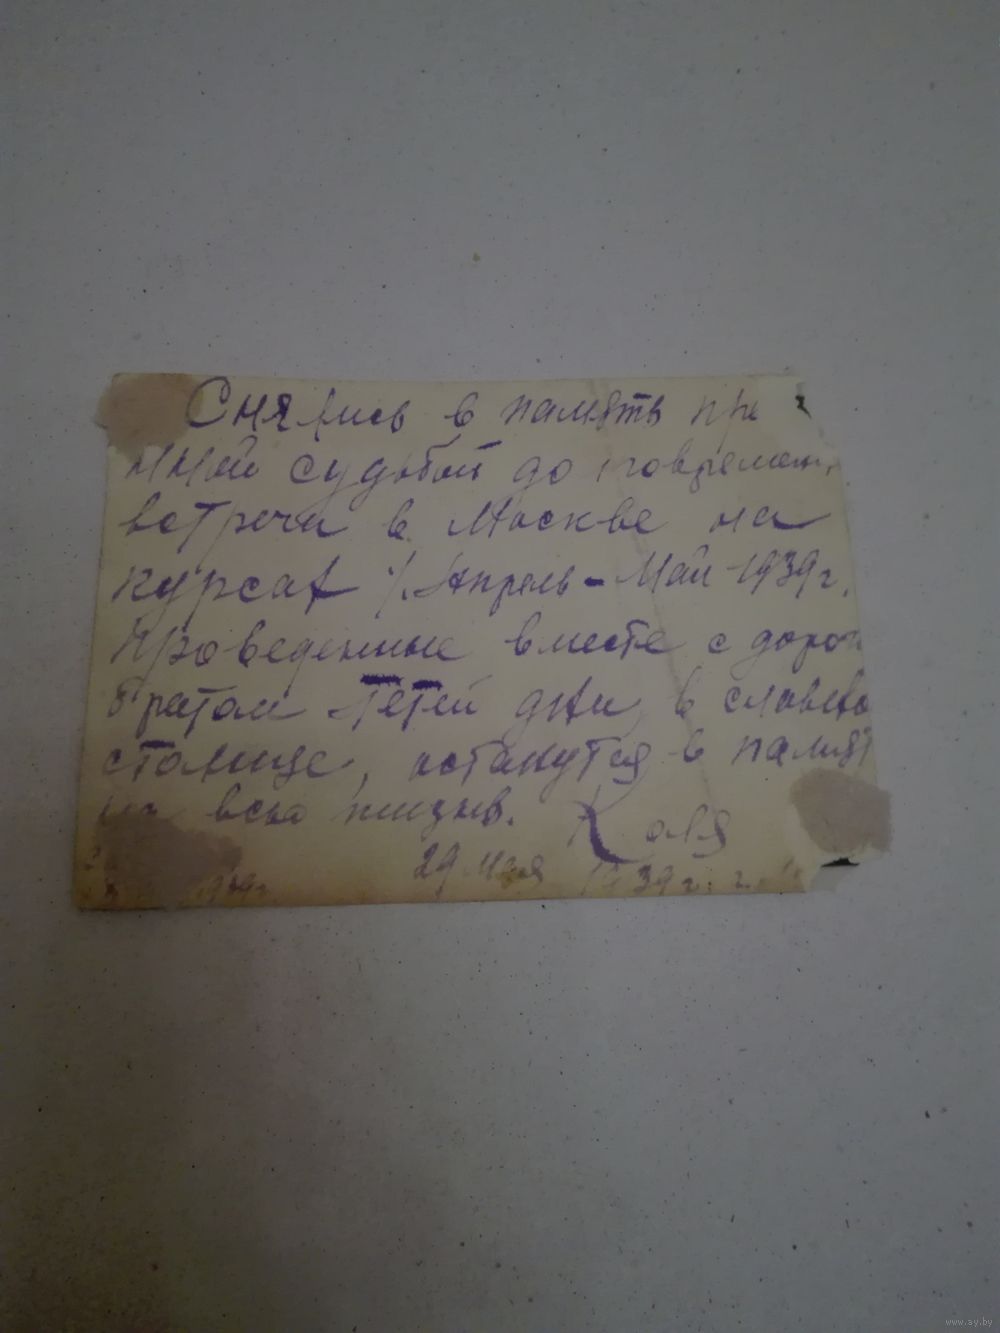 Снялись в память пре
нной судьбой до
встречи в Москве на
курсах Апрель-Май-1939г.
Проведенные вместе с доро
братом Петей дни, в
столице, останутся в памят
на всю жизнь. Коля
29 мая 1939г. г.
www.ay.by